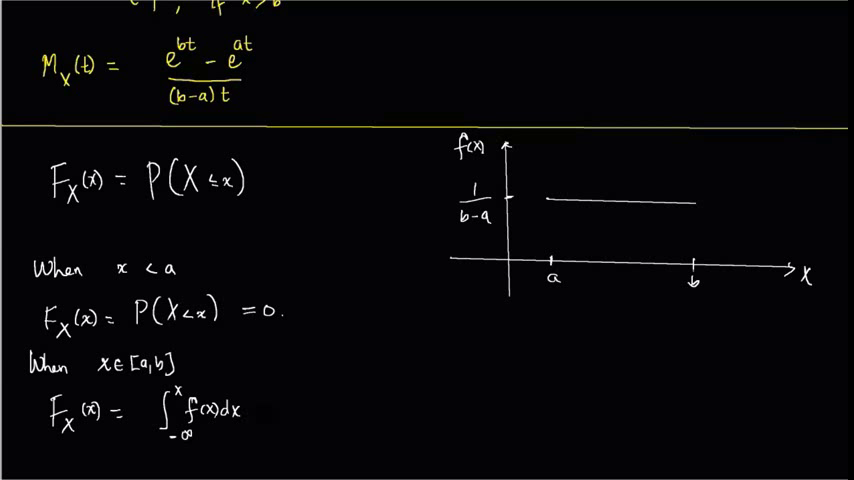 1, if x > b
M_X(t) = \frac{e^{bt} - e^{at}}{(b-a)t}
F_X(x) = P(X ≤ x)
When x < a
F_X(x) = P(X < x) = 0.
When x ∈ [a,b]
F_X(x) = ∫_{-∞}^{x} f(x)dx
f(x)
\frac{1}{b-a}
a
b
X